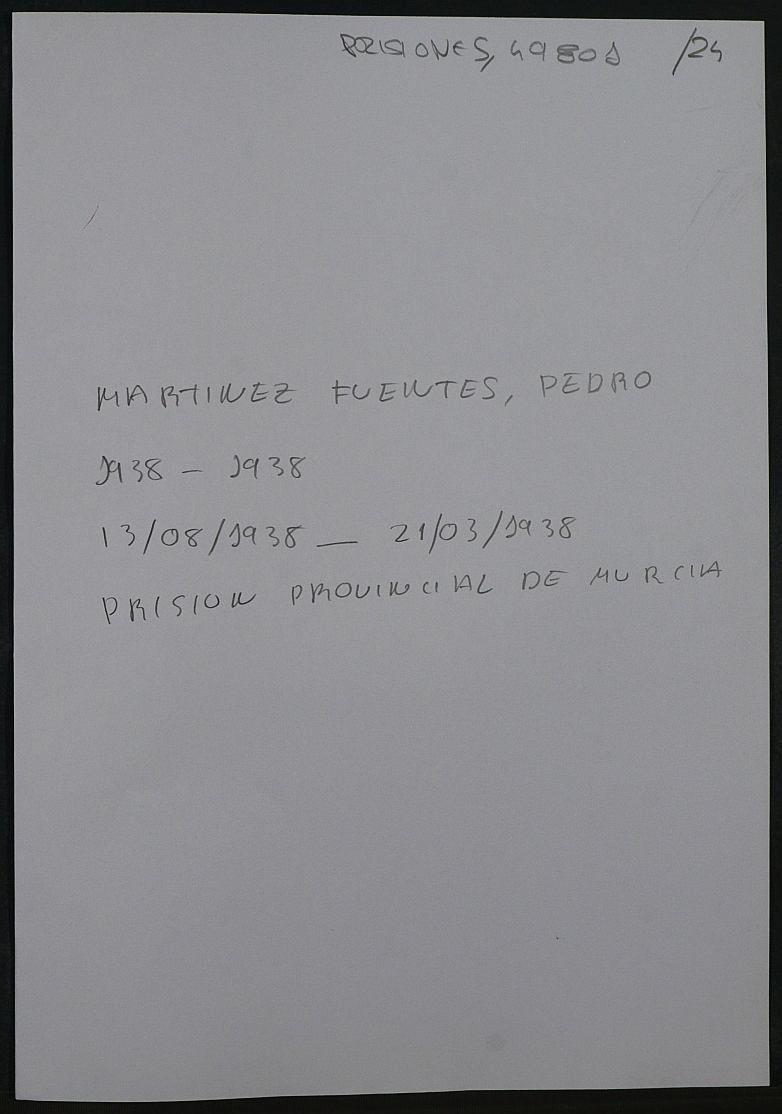 PRISIONES, 49801 /24
MARTINEZ FUENTES, PEDRO
1938 - 1938
13/08/1938 — 21/03/1938
PRISION PROVINCIAL DE MURCIA